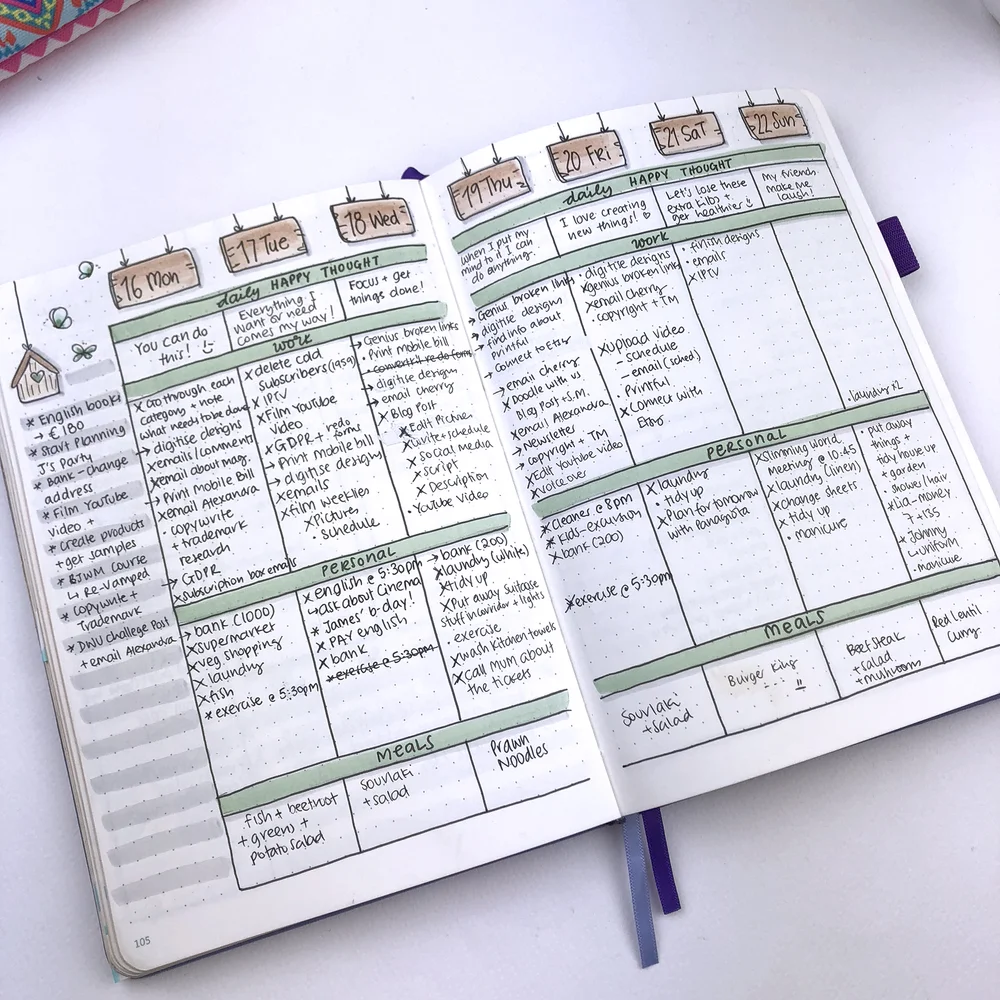 16 Mon
17 Tue
18 Wed
daily HAPPY THOUGHT
You can do
this!
Everything I
want or need
comes my way!
Focus + get
things done!
work
* English books
→ €180
* Start Planning
J's Party
* Bank-change
address
* Film YouTube
video +
* Create products
+ get samples
* BJWM Course
↳ Re-vamped
* copywrite +
Trademark
* DNU challenge Post
+ email Alexandra
X Go through each
category + note
what needs to be done
→ digitise designs
X emails/comments
X email about mag.
→ Print mobile bill
X email Alexandra
X copywrite
+ trademark
research
→ GDPR
X subscription box emails
X delete cold
subscribers (1959)
X IPTV
X Film YouTube
video
X GDPR + redo
forms
→ Print mobile bill
→ digitise designs
X emails
X film weeklies
X Picture,
• schedule
→ Genius broken links
• Print mobile bill
→ digitise designs
→ email cherry
X Blog Post
X Edit Pictures
X write + schedule
X Social media
X script
X Description
• YouTube video
PERSONAL
→ bank (1000)
X supermarket
X veg shopping
X laundry
X fish
* exercise @ 5:30pm
X english @ 5:30pm
↳ ask about Cinema
* James' b-day!
X PAY english
X bank
* exercise @ 5:30pm
→ bank (200)
X laundry (white)
X tidy up
X Put away suitcase
stuff in corridor + lights
• exercise
X wash kitchen towels
X call MUM about
the tickets
MEALS
fish + beetroot
+ greens +
potato salad
souvlaki
+ salad
Prawn
Noodles
105
19 Thu
20 Fri
21 SaT
22 Sun
daily HAPPY THOUGHT
when I put my
mind to it I can
do anything.
I love creating
new things!
Let's lose these
extra kilos +
get healthier
my friends
make me
laugh!
work
→ Genius broken links
→ digitise designs
→ find info about
printful
+ connect to Etsy
→ email cherry
X Doodle with us
Blog Post + S.M.
X email Alexandra
X Newsletter
→ copyright + TM
X Edit YouTube video
X voice over
• digitise designs
X genius broken links
X email Cherry
• copyright + TM
X Upload video
- schedule
- email (sched)
• Printful
X Connect with
Etsy
• finish designs
• emails
X IPTV
• laundry x2
PERSONAL
X cleaner @ 8pm
X kids-excursion
X bank (200)
X exercise @ 5:30pm
X laundry
• tidy up
X Plan for tomorrow
with Panagiota
X Slimming World
meeting @ 10.45
X laundry (linen)
X change sheets
X tidy up
• manicure
• put away
things +
tidy house up
• garden
• shower/hair
X Lia-money
7+135
* Johnny
↳ uniform
• manicure
MEALS
Souvlaki
+ salad
Burger King
Beef Steak
+ salad
+ mushroom
Red Lentil
Curry